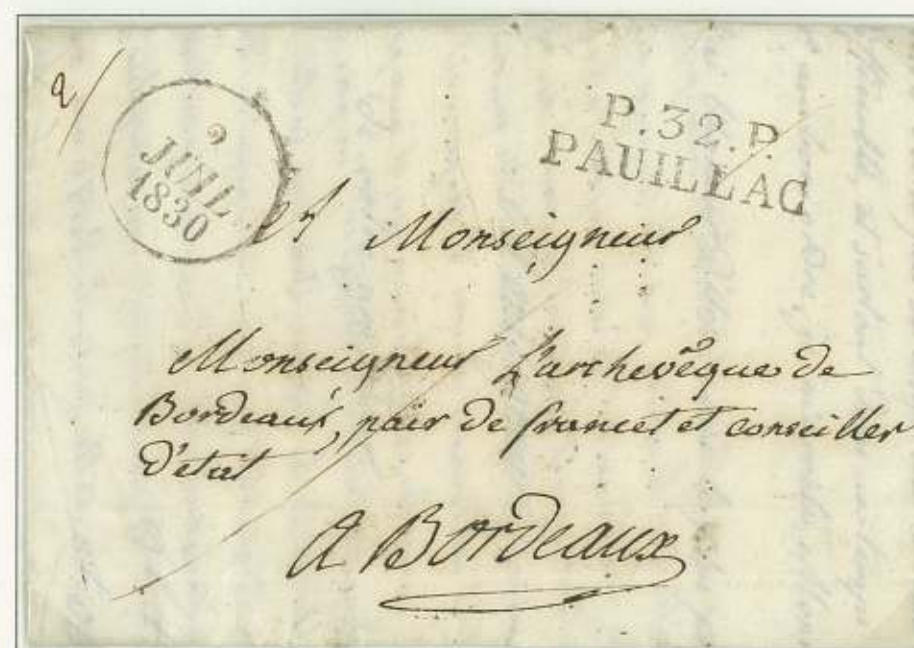 2/
9
JUIL
1830
P.32.P.
PAUILLAC
Monseigneur
Monseigneur L'archevêque de
Bordeaux, pair de france et conseiller
d'etat
A Bordeaux